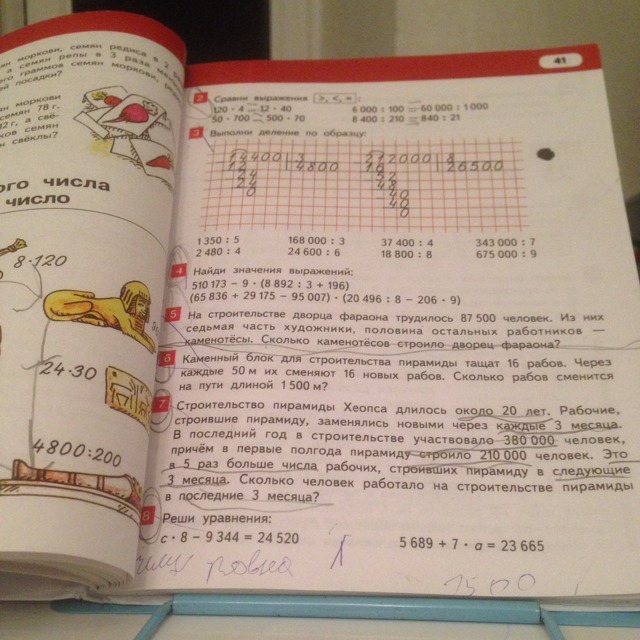 ян моркови, семян редиса в 2
а семян репы в 3 раза
граммов семян моркови,
посадки?
моркови
семян 78 г.
12 г, а свё-
семян
свёклы?
ого числа
число
8·120
24·30
4800:200
41
2 Сравни выражения >, <, = :
120 · 4 = 12 · 40 6 000 : 100 = 60 000 : 1 000
50 · 700 = 500 · 70 8 400 : 210 = 840 : 21
3 Выполни деление по образцу:
14400 3 212000 8
12 4800 16 26500
24 52
24 48
0 40
40
0
1 350 : 5 168 000 : 3 37 400 : 4 343 000 : 7
2 480 : 4 24 600 : 6 18 800 : 8 675 000 : 9
4 Найди значения выражений:
510 173 − 9 · (8 892 : 3 + 196)
(65 836 + 29 175 − 95 007) · (20 496 : 8 − 206 · 9)
5 На строительстве дворца фараона трудилось 87 500 человек. Из них
седьмая часть художники, половина остальных работников —
каменотёсы. Сколько каменотёсов строило дворец фараона?
6 Каменный блок для строительства пирамиды тащат 16 рабов. Через
каждые 50 м их сменяют 16 новых рабов. Сколько рабов сменится
на пути длиной 1 500 м?
7 Строительство пирамиды Хеопса длилось около 20 лет. Рабочие,
строившие пирамиду, заменялись новыми через каждые 3 месяца.
В последний год в строительстве участвовало 380 000 человек,
причём в первые полгода пирамиду строило 210 000 человек. Это
в 5 раз больше числа рабочих, строивших пирамиду в следующие
3 месяца. Сколько человек работало на строительстве пирамиды
в последние 3 месяца?
8 Реши уравнения:
c · 8 − 9 344 = 24 520 5 689 + 7 · a = 23 665
равна